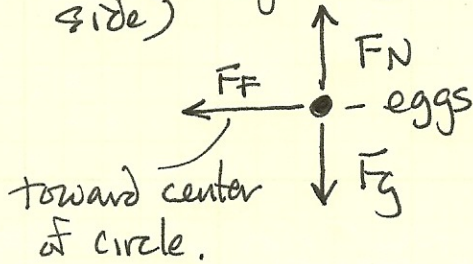 side)
FN
FF
- eggs
Fg
toward center
of circle.